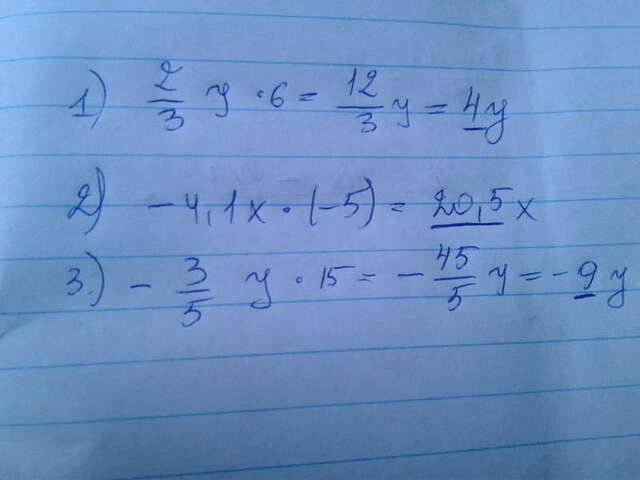 1) 2/3 y · 6 = 12/3 y = 4y
2) -4,1x · (-5) = 20,5x
3.) - 3/5 y · 15 = - 45/5 y = -9y